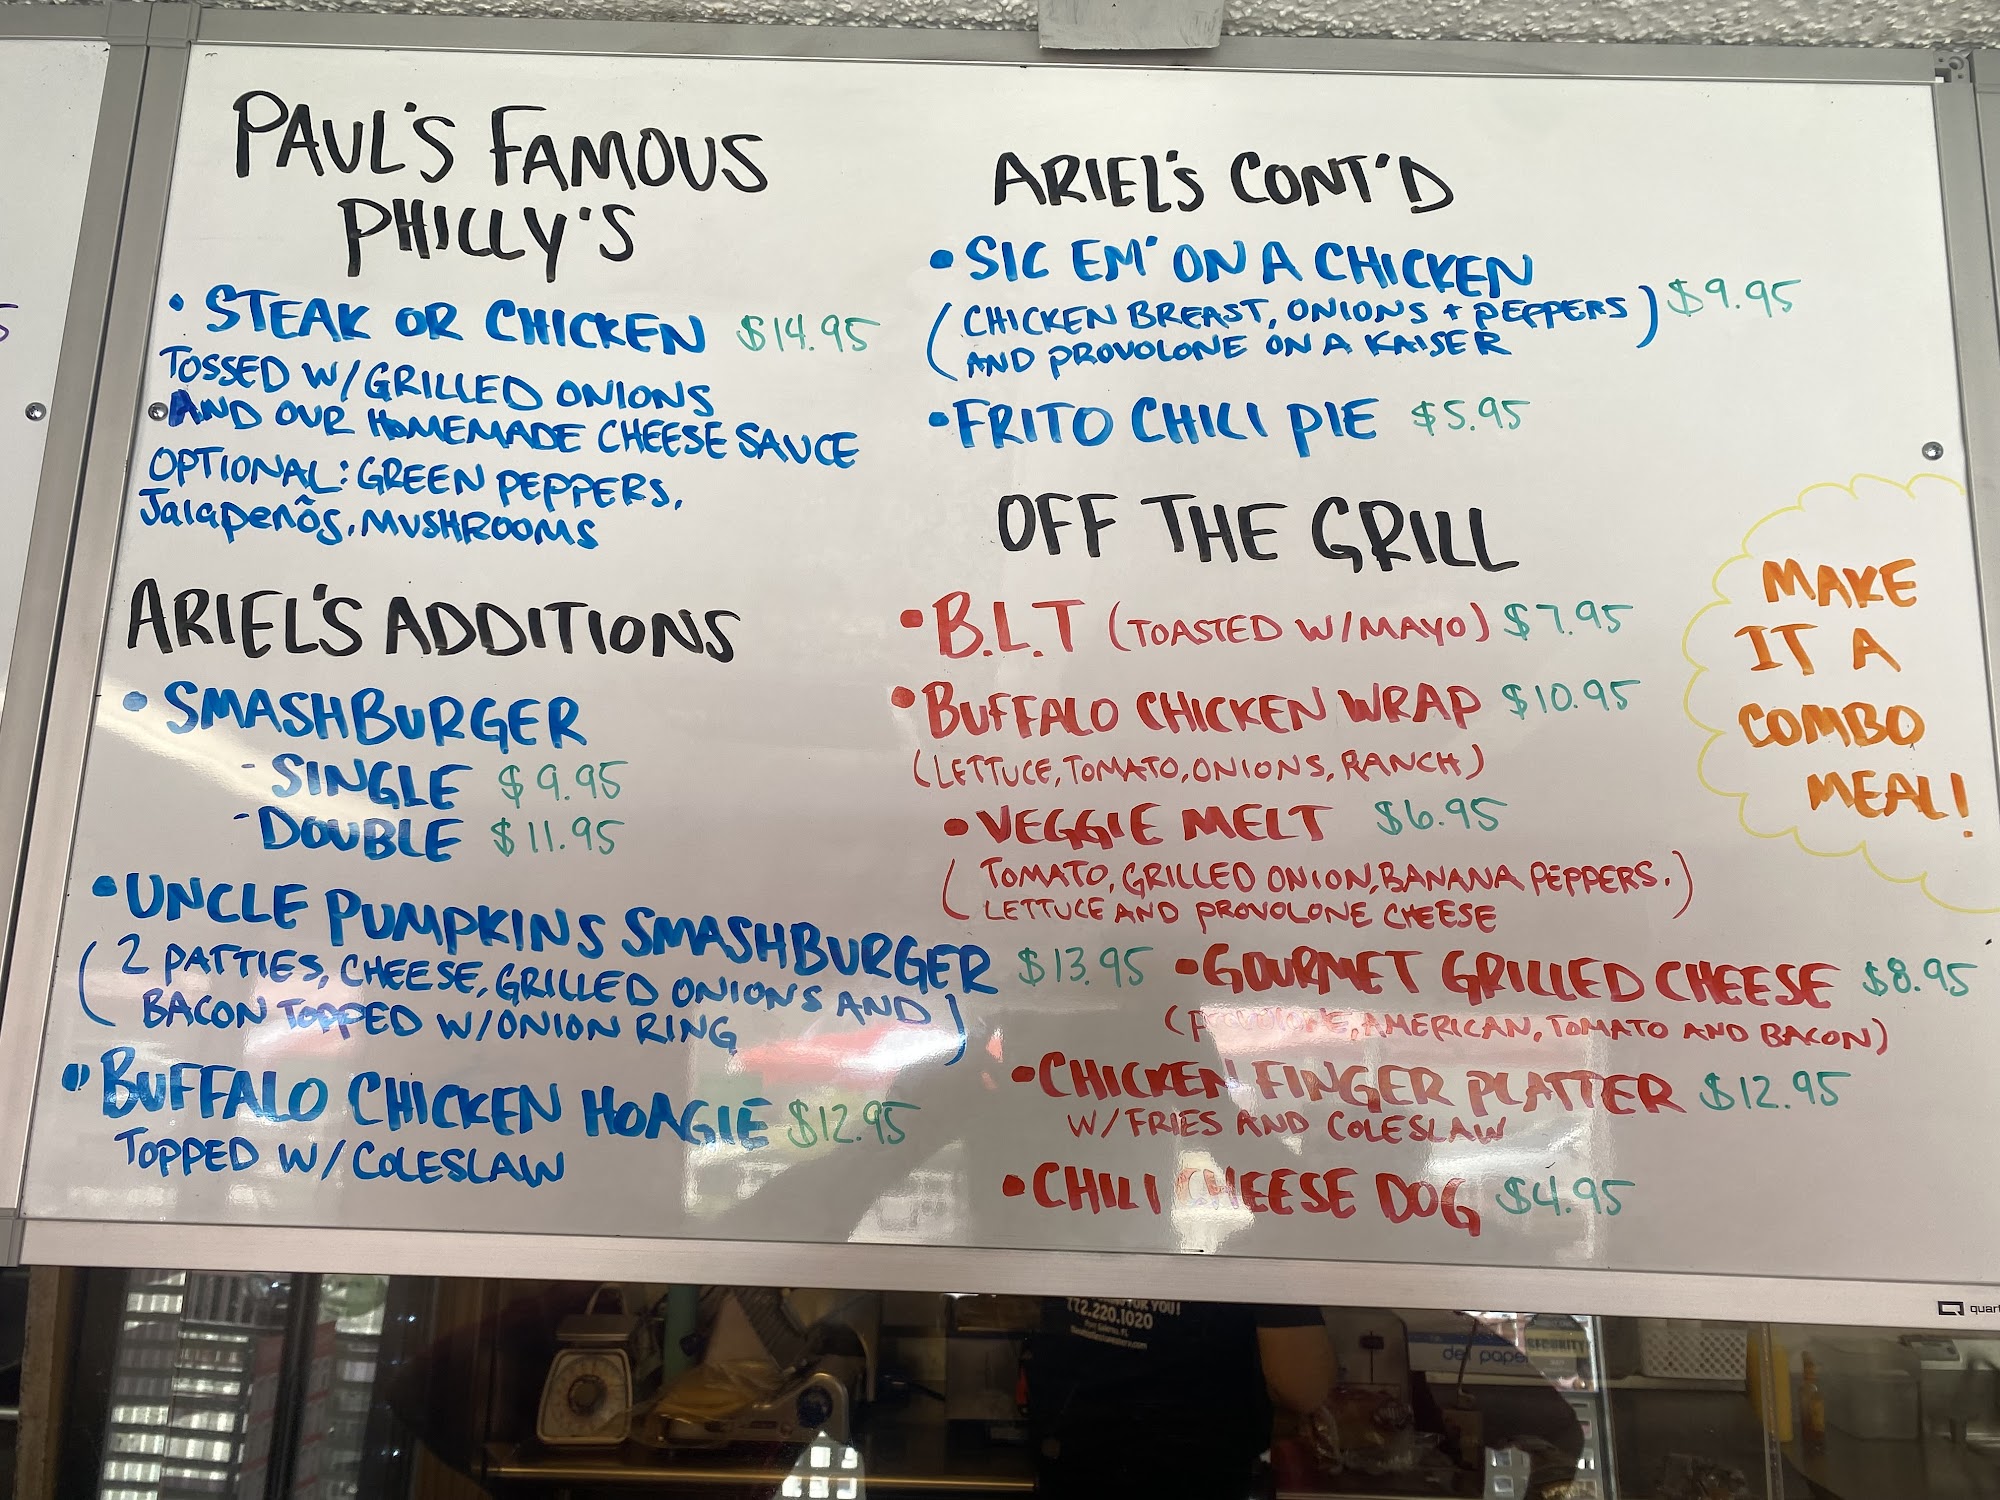 PAUL'S FAMOUS
PHILLY'S
• STEAK OR CHICKEN $14.95
TOSSED W/GRILLED ONIONS
AND OUR HOMEMADE CHEESE SAUCE
OPTIONAL: GREEN PEPPERS,
Jalapeñõs, MUSHROOMS
ARIEL'S ADDITIONS
• SMASHBURGER
- SINGLE $9.95
- DOUBLE $11.95
• UNCLE PUMPKINS SMASHBURGER $13.95
(2 PATTIES, CHEESE, GRILLED ONIONS AND
BACON TOPPED W/ONION RING)
• BUFFALO CHICKEN HOAGIE $12.95
TOPPED W/COLESLAW
ARIEL'S CONT'D
• SIC EM' ON A CHICKEN
(CHICKEN BREAST, ONIONS + PEPPERS) $9.95
AND PROVOLONE ON A KAISER
• FRITO CHILI PIE $5.95
OFF THE GRILL
• B.L.T (TOASTED W/MAYO) $7.95
• BUFFALO CHICKEN WRAP $10.95
(LETTUCE, TOMATO, ONIONS, RANCH)
• VEGGIE MELT $6.95
(TOMATO, GRILLED ONION, BANANA PEPPERS,
LETTUCE AND PROVOLONE CHEESE)
• GOURMET GRILLED CHEESE $8.95
(PROVOLONE, AMERICAN, TOMATO AND BACON)
• CHICKEN FINGER PLATTER $12.95
W/FRIES AND COLESLAW
• CHILI CHEESE DOG $4.95
MAKE
IT A
COMBO
MEAL!
FOR YOU!
772.220.1020
SECURITY
del papel